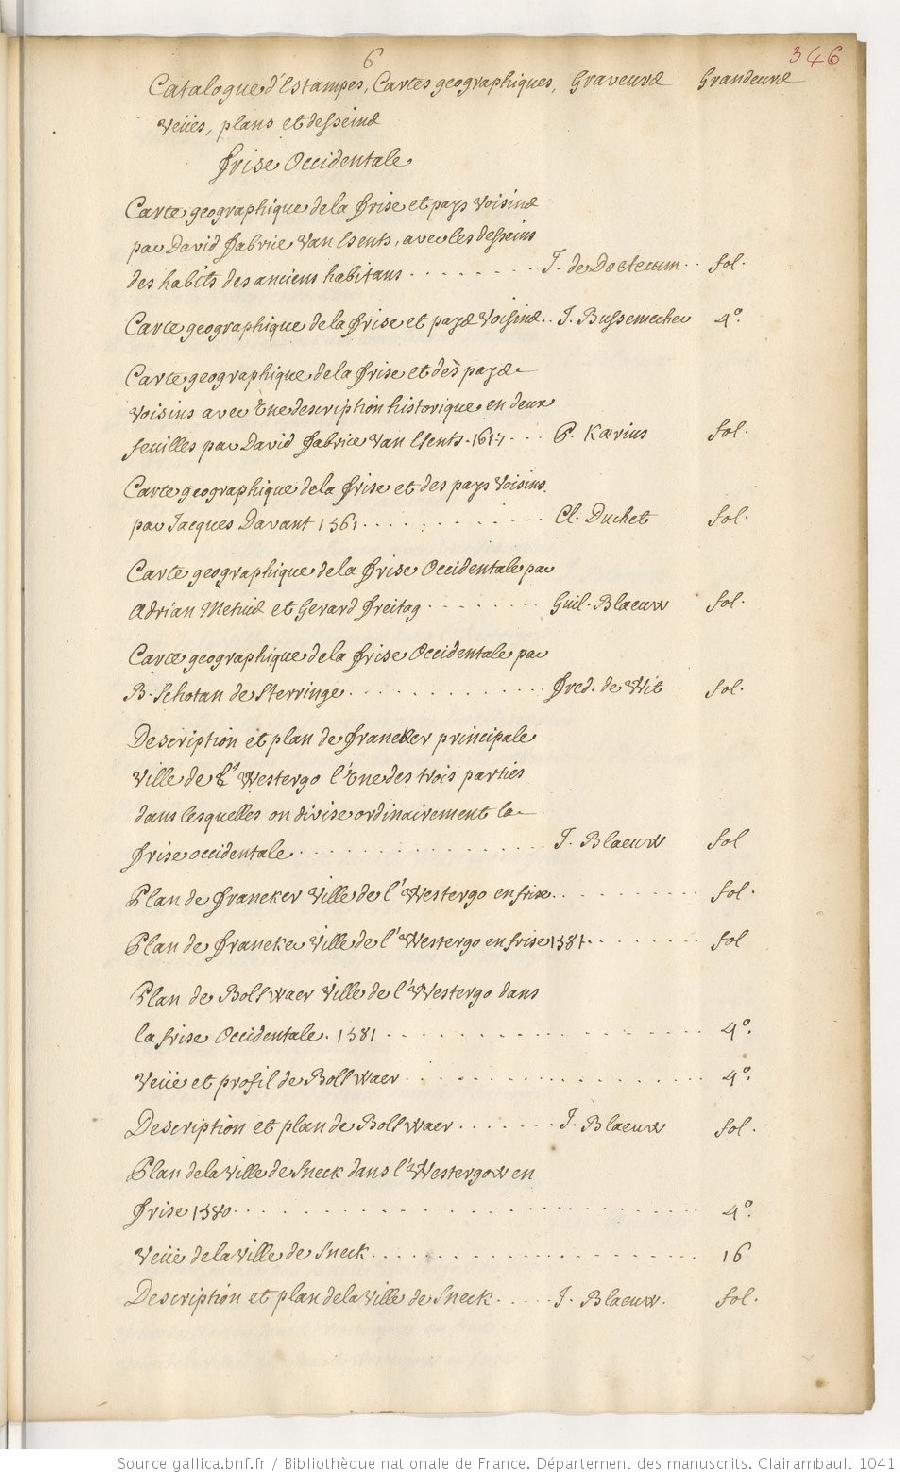 6
346
Catalogue d'Estampes, Cartes geographiques, Graveurs Grandeurs
Veües, plans et desseins
Frise Occidentale
Carte geographique de la Frise et pays Voisins
par David Fabrice Van Esents, avec les desseins
des habits des anciens habitans ........ J. de Doetecum .. fol.
Carte geographique de la Frise et pays Voisins .. J. Bussemecher 4°.
Carte geographique de la Frise et des pays
Voisins avec Une description historique en deux
feuilles par David Fabrice Van Esents. ... P. Karius fol.
Carte geographique de la Frise et des pays Voisins
par Jacques Davant 1561 ......... Cl. Duchet fol.
Carte geographique de la Frise Occidentale par
Adrian Metius et Gerard Freitag ....... Guil. Blaeuw fol.
Carte geographique de la Frise Occidentale par
B. Schotan de Sterringe ............. Fred. de Wit fol.
Description et plan de Franeker principale
Ville de Westergo l'Une des trois parties
dans lesquelles on divise ordinairement la
Frise occidentale .............. J. Blaeuw fol
Plan de Franeker Ville de l'Westergo en frise .......... fol.
Plan de Franeker Ville de l'Westergo en frise ........ fol
Plan de Bolswaer Ville de l'Westergo dans
la frise Occidentale. 1581 .................... 4°.
Veüe et profil de Bolswaer ................. 4°.
Description et plan de Bolswaer ....... J. Blaeuw fol.
Plan de la Ville de Sneck dans l'Westergow en
Frise 1580 ........................... 4°.
Veüe de la Ville de Sneck .................. 16
Description et plan de la Ville de Sneck ..... J. Blaeuw. fol.
Source gallica.bnf.fr / Bibliothèque nationale de France. Département des manuscrits. Clairambault 1041